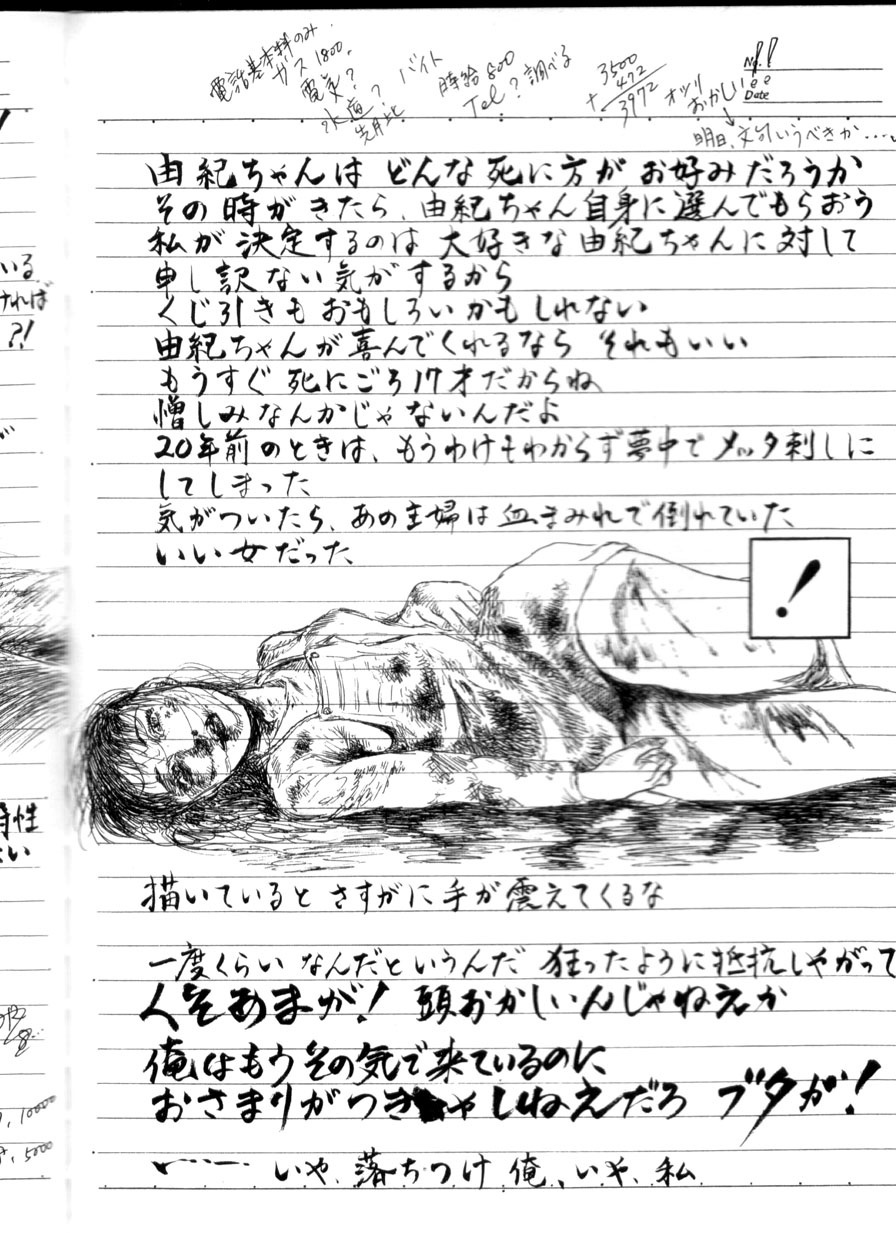 電話基本料のみ
ガス 1800.
電気?
水道?
先月比
バイト
時給 800
Tel? 調べる
3500
472
+
3972
オツリ
おかしい
No.
Date
明日、文句いうべきか….
由紀ちゃんは どんな死に方が お好みだろうか
その時がきたら、由紀ちゃん自身に選んでもらおう
私が決定するのは 大好きな由紀ちゃんに対して
申し訳ない気がするから
くじ引きもおもしろいかもしれない
由紀ちゃんが喜んでくれるなら それもいい
もうすぐ 死にごろ17才だからね
憎しみなんかじゃないんだよ
20年前のときは、もうわけもわからず夢中でメッタ刺しに
してしまった
気がついたら、あの主婦は血まみれで倒れていた
いい女だった
!
いる
ければ
?!
描いていると さすがに手が震えてくるな
特性
一度くらい なんだというんだ 狂ったように抵抗しやがって
人をあまが! 頭おかしいんじゃねえか
俺はもうその気で来ているのに
おさまりがつきゃしねえだろ ブタが!
10000
5000
いや、落ちつけ 俺、いや、私